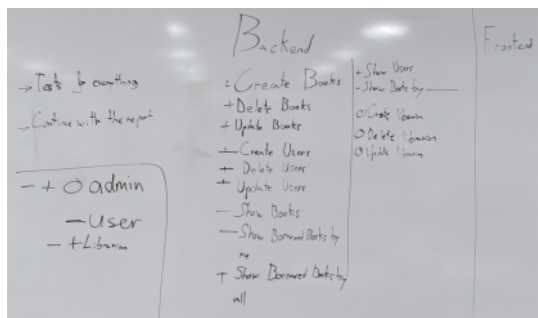 → Tests for everything
→ Continue with the report
- + O admin
- User
- + Librarian
Backend
+ Create Books
+ Delete Books
+ Update Books
+ Create Users
+ Delete Users
+ Update Users
- Show Books
- Show Borrowed Books by
me
+ Show Borrowed Books by
all
+ Show Users
- Show Books by
O Create librarian
O Delete librarian
O Update librarian
Frontend